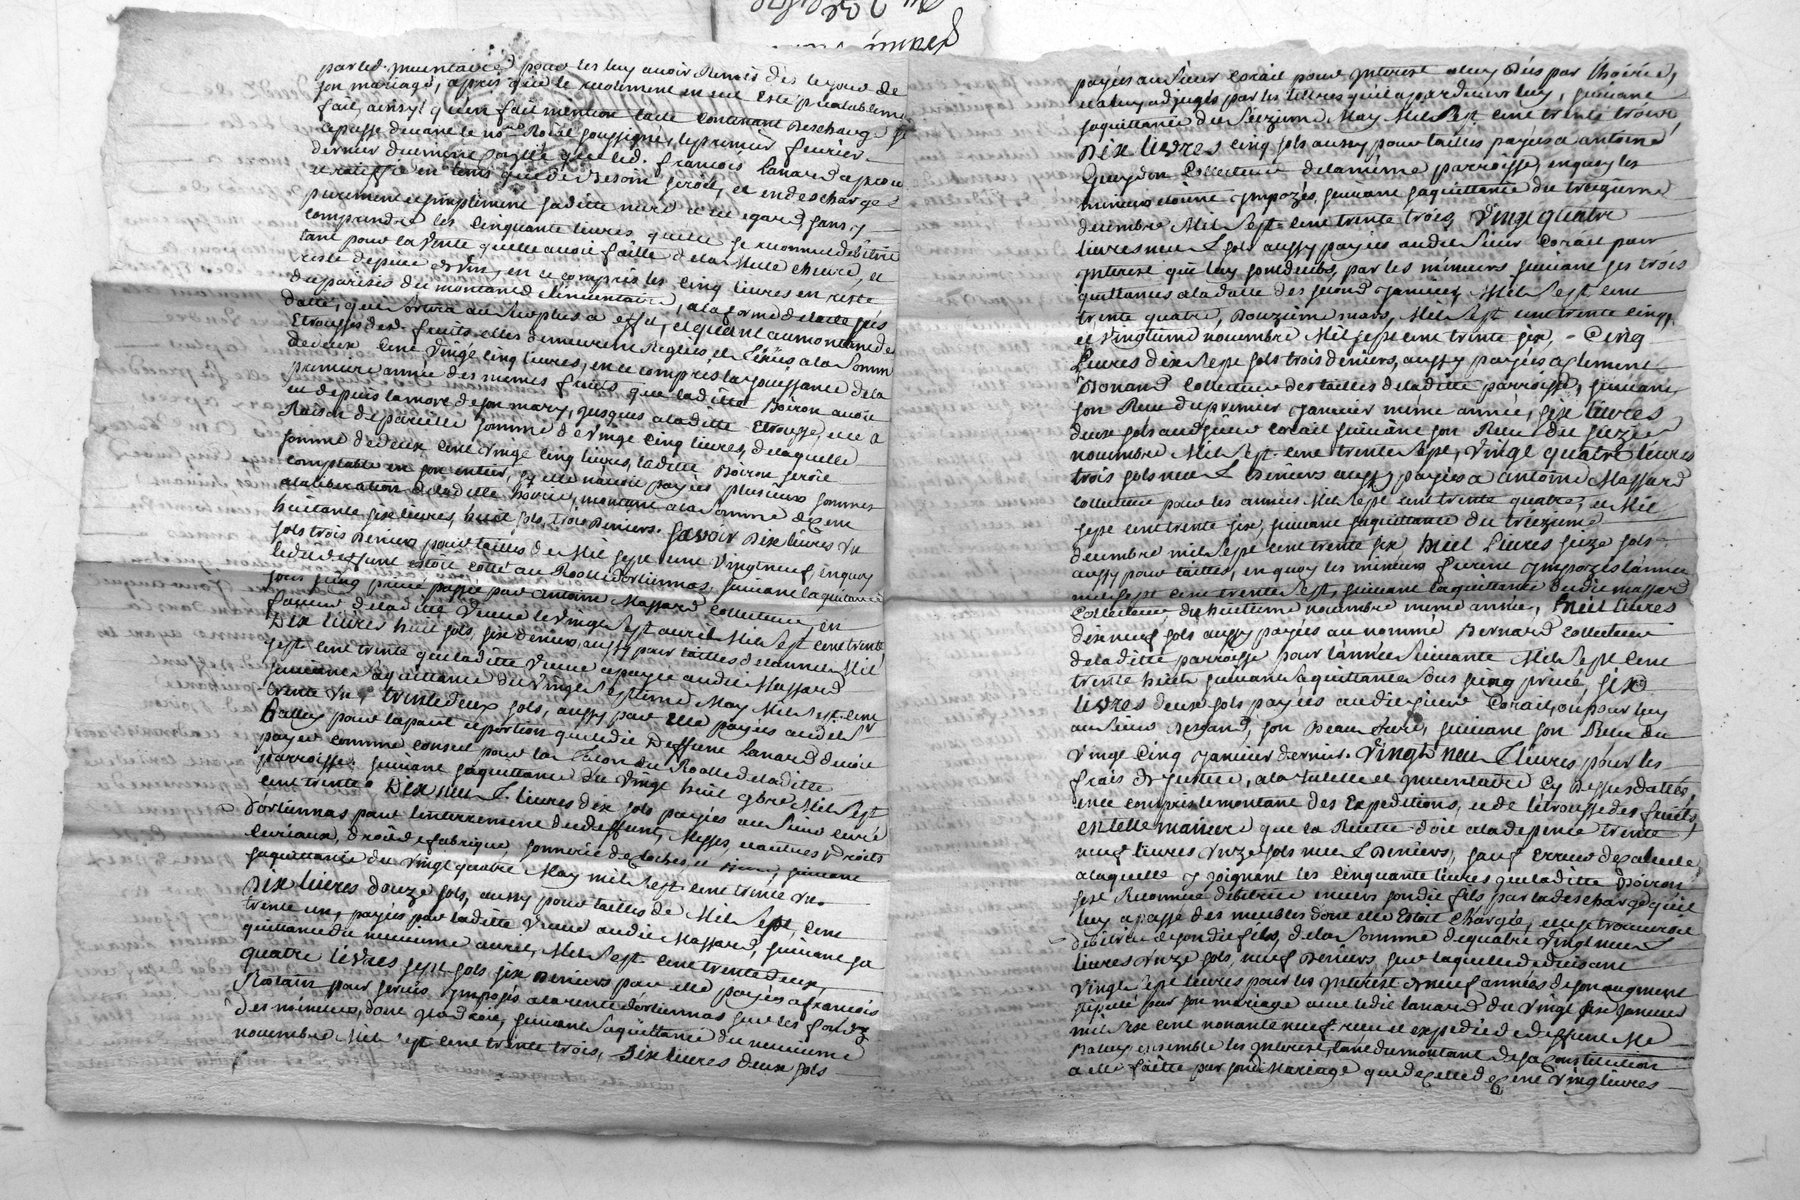 par led. inventaire pour les luy avoir Remis des le jour de
son mariage, apres que le recolement en eut esté prealableme
fait, ainsy qu'en fait mention lacte contenant Descharge
passé devant le no.re Roial soussigné, le premier fevrier
dernier duement que led. françois Lanard aprouve
et ratiffie en tems que de Besoin seroit, et en descharge
purement et simplement sa ditte mere a cet egard sans y
comprendre les Cinquante livres quelle se reconnue debitrice
tant pour la Vente quelle avoit faitte dela Mille chevre, et
reste de piece de Vin, en ce compris les Cinq livres en reste
du parisis du montant d'inventaire, a la forme de lacte sus
datté, que sortira au surplus a effet, et quant au montant de
Etrousses des d. fruits elles demeurent Reglées, et fixées a la Somm
de deux Cent Vingt cinq livres, en ce compris la jouissance de la
premiere année des memes fruits que laditte Boiron avoit
eu depuis la mort de son mary, jusques a laditte Etrousse, eue a
Raison de pareille somme de Vingt Cinq livres, de laquelle
somme de deux Cent Vingt Cinq livres, laditte Boiron seroit
comptable en son entier, sy elle navoit payées plusieurs sommes
a la liberation de laditte hoirie, montant a la somme de Cent
huitante six livres, huit sols, trois Deniers. Savoir Dix livres un
sols trois Deniers pour tailles de Mil sept cent Vingt neuf, en quoy
ledit deffunt estoit cotté au Roolle d'ortiennas, suivant la quittance
sous seing privé passée par Antoine Massard Collecteur en
faveur de laditte Veuve le Vingt Sept avril Mil Sept cent trente
Dix livres huit sols, six deniers, aussy pour tailles de lannée Mil
sept cent trente que laditte Veuve a payée audit Massard
suivant sa quittance du Vingt Septieme May Mil Sept cent
trente un. Trente deux sols, aussy par elle payées aud. s.r
Balley pour la part et portion que ledit Deffunt Lanard devoit
payer comme consul pour la facon du Roolle de laditte
parroisse, suivant sa quittance du Vingt huit 9bre Mil Sept
cent trente. Dix neuf livres dix sols payées au Sieur curé
d'ortiennas pour lenterrement dudeffunt, Messes et autres Droits
Curiaux, droit de fabrique, sonnerie de Cloches et suivant
sa quittance du Vingt quatre May mil Sept cent trente un.
Dix livres douze sols, aussy pour tailles de Mil Sept Cent
trente un, payées par laditte Veuve audit Massard, suivant sa
quittance du neuvieme avril, Mil Sept cent trente deux,
quatre livres sept sols six Deniers par elle payées a françois
Rostain pour servis imposés a la rente d'ortiennas sur les fonds
des mineurs, dont suivant sa quittance du neuvieme
novembre Mil Sept cent trente trois, Dix livres deux sols
payées au sieur Corail pour interest a luy dûs par lhoirie,
suivant
sa quittance du Seizieme May Mil Sept Cent trente trois,
Dix livres cinq sols aussy pour tailles payées a antoine
Collecteur de la meme parroisse, en quoy les
mineurs etoient imposés, suivant sa quittance du treizieme
decembre Mil Sept cent trente trois, Vingt quatre
livres neuf sols aussy payées audit sieur Corail pour
interest qui luy sont deubs, par les mineurs suivant ses trois
quittances a la datte des second Janvier, Mil Sept cent
trente quatre, Douzieme mars, Mil Sept cent trente cinq,
et Vingtieme novembre Mil sept cent trente six, Cinq
Livres dix Sept sols trois deniers, aussy payées a Clement
Donand Collecteur des tailles de laditte parroisse, suivant
son Recu du premier Janvier meme année, six livres
deux sols aud. sieur Corail suivant son Recu du seizie
novembre Mil Sept cent trente Sept, Vingt quatre livres
trois sols neuf Deniers aussy payées a antoine Massard
Collecteur pour les années Mil Sept cent trente quatre, et Mil
sept cent trente six, suivant sa quittance du treizieme
decembre mil Sept cent trente six, huit Livres seize sols
aussy pour tailles, en quoy les mineurs furent imposés lannée
mil sept cent trente Sept, suivant la quittance dudit massard
Collecteur du huitieme novembre meme année, huit livres
dix neuf sols aussy payées au nommé Bernard Collecteur
de laditte parroisse pour lannée Suivante Mil Sept Cent
trente huit suivant sa quittance Sous seing privé, six
livres deux sols payées audit sieur Corail, ou pour luy
au Sieur Desgand, son Beau frere, suivant son Recu du
Vingt Cinq Janvier dernier. Vingt neuf livres pour les
frais de Justice, a la tutelle et inventaire Cy Dessus datté,
en ce compris le montant des Expeditions, et de létrousse des fruits,
en telle maniere que la Recette doit a la depence trente
neuf livres onze sols neuf Deniers, sauf erreur de calcule
a laquelle y joignant les Cinquante livres que laditte Boiron
sest Reconnue debitrice envers son dit fils par la descharge qu'il
luy a passé des meubles dont elle Estoit Chargée, elle se trouveroit
debitrice de son dit fils, de la Somme de quatre Vingt neuf
livres onze sols, neuf Deniers, sur laquelle deduisant
Vingt Sept livres pour les interest de neuf années de son augment
stipulé par son mariage avec ledit Lanard du Vingt six Janvier
mil Six cent nonante neuf, receu et expedié de deffunt Me
Balley, ensemble les interest, tant du montant de sa Constitution
a elle faitte par sondit Mariage que de celle de Cent Vingt livres